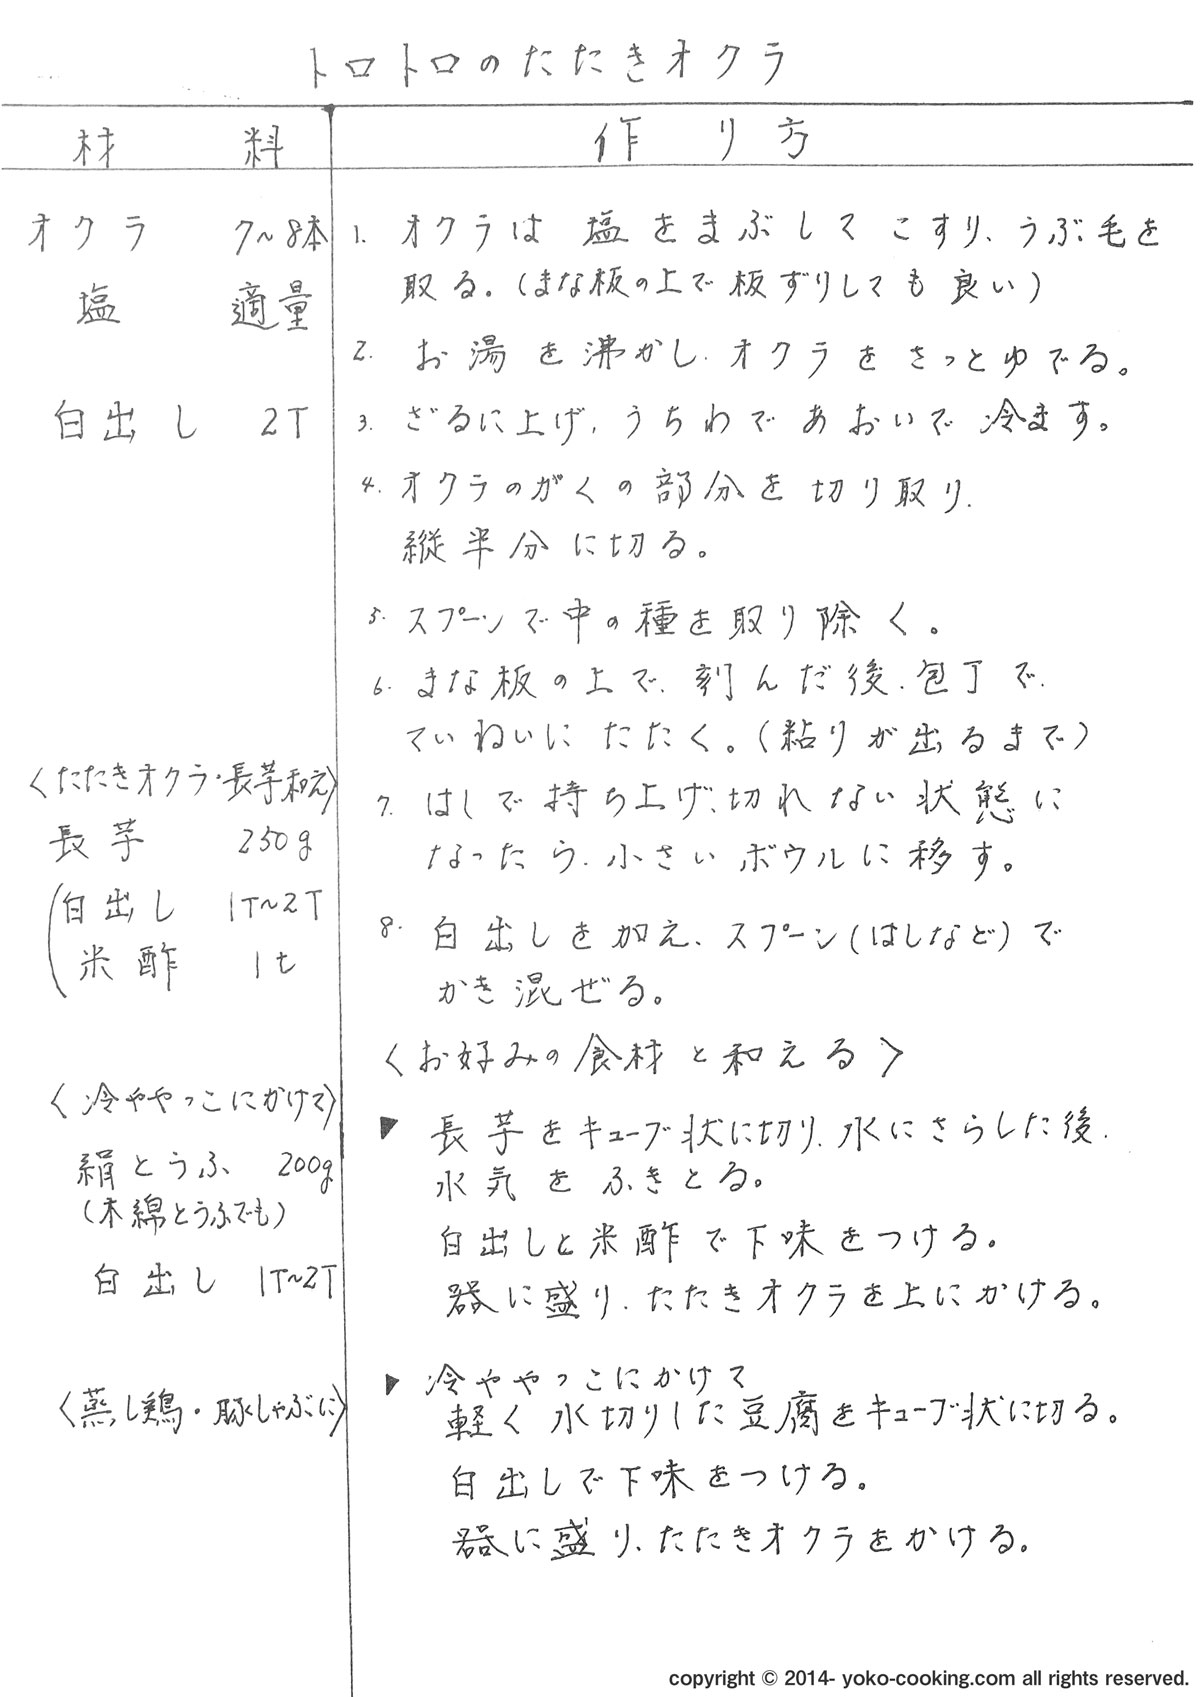 トロトロのたたきオクラ
材 料
作り方
オクラ 7〜8本
塩 適量
白出し 2T
〈たたきオクラ・長芋和え〉
長芋 250g
(白出し 1T〜2T
米酢 1t
〈冷ややっこにかけて〉
絹とうふ 200g
(木綿とうふでも)
白出し 1T〜2T
〈蒸し鶏・豚しゃぶに〉
1. オクラは塩をまぶしてこすり、うぶ毛を
取る。(まな板の上で板ずりしても良い)
2. お湯を沸かし、オクラをさっとゆでる。
3. ざるに上げ、うちわであおいで冷ます。
4. オクラのがくの部分を切り取り、
縦半分に切る。
5. スプーンで中の種を取り除く。
6. まな板の上で、刻んだ後、包丁で、
ていねいにたたく。(粘りが出るまで)
7. はしで持ち上げ、切れない状態に
なったら、小さいボウルに移す。
8. 白出しを加え、スプーン(はしなど)で
かき混ぜる。
〈お好みの食材と和える〉
▶ 長芋をキューブ状に切り、水にさらした後、
水気をふきとる。
白出しと米酢で下味をつける。
器に盛り、たたきオクラを上にかける。
▶ 冷ややっこにかけて
軽く水切りした豆腐をキューブ状に切る。
白出しで下味をつける。
器に盛り、たたきオクラをかける。
copyright © 2014- yoko-cooking.com all rights reserved.